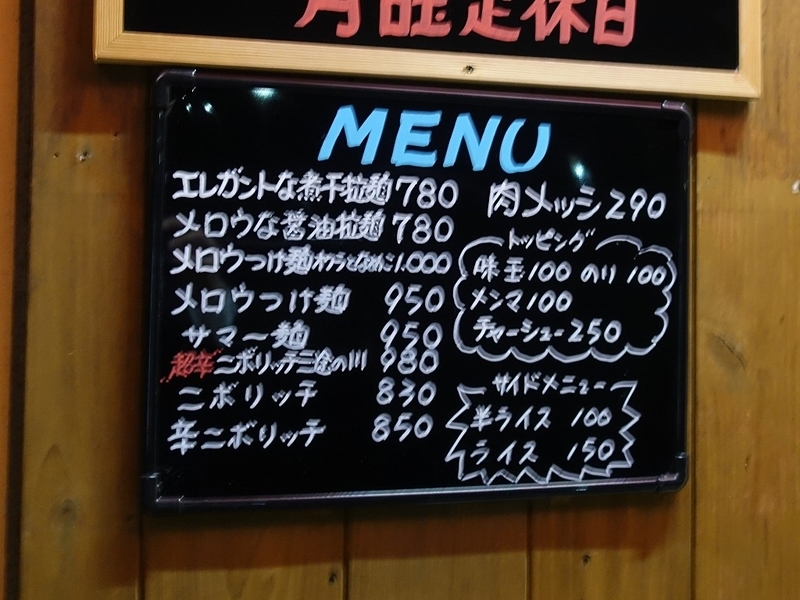 月曜定休日
MENU
エレガントな煮干拉麺 780
メロウな醤油拉麺 780
メロウつけ麺オクラとなめこ 1.000
メロウつけ麺 950
サマー麺 950
超辛ニボリッチ三途の川 980
ニボリッチ 830
辛ニボリッチ 850
肉メッシ 290
トッピング
味玉100 のり100
メンマ100
チャーシュー250
サイドメニュー
半ライス 100
ライス 150